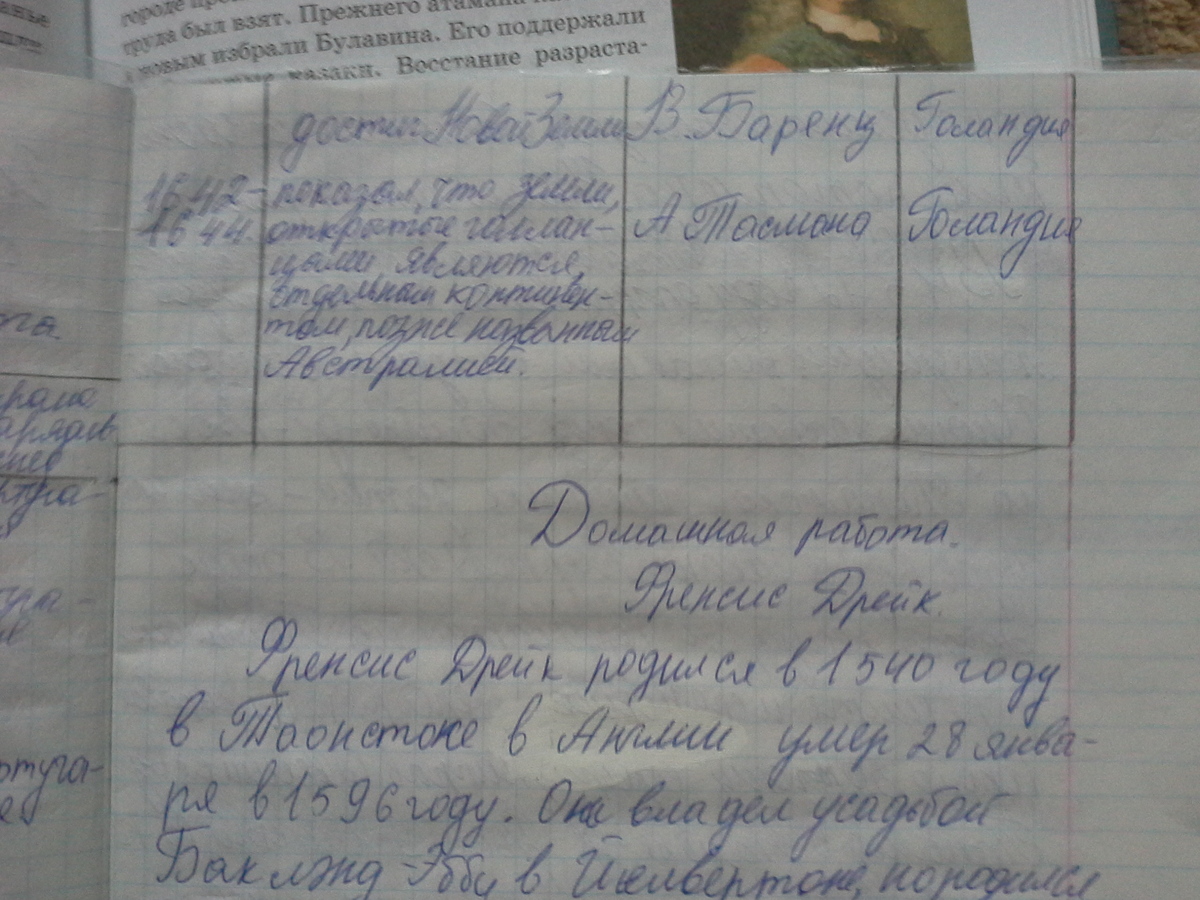 городе
труда был взят. Прежнего атамана
новым избрали Булавина. Его поддержали
казаки. Восстание разраста-
достиг Новой Земли В. Баренц Голандия
1642- показал, что земли,
1644. открытые голлан- А Тасмана Голандия
цами, являются,
отдельным континен-
том, позже названным
Австралией.
Домашная работа.
Френсис Дрейк.
Френсис Дрейк родился в 1540 году
в Таонстоке в Англии умер 28 янва-
ря в 1596 году. Он владел усадьбой
Баклэнд-Эбби в Йелвертоне, но родился